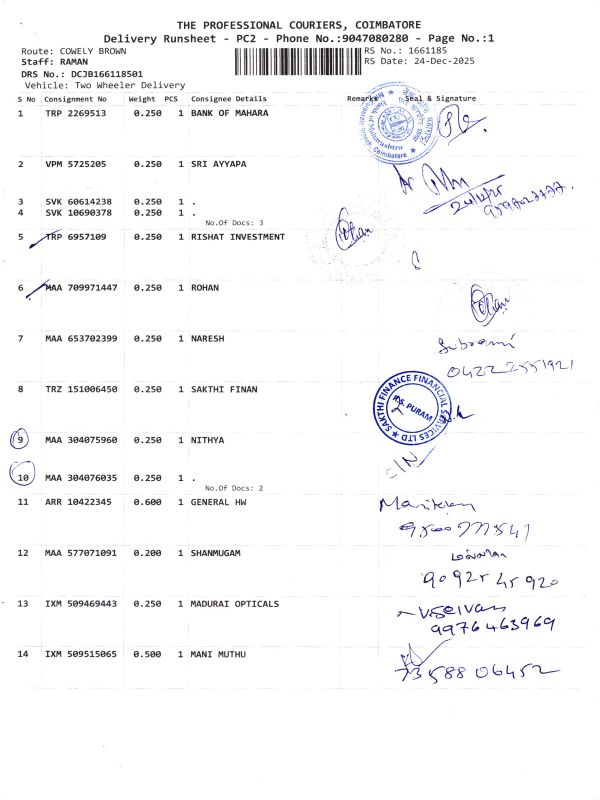 THE PROFESSIONAL COURIERS, COIMBATORE
Delivery Runsheet - PC2 - Phone No.:9047080280 - Page No.:1
Route: COWELY BROWN RS No.: 1661185
Staff: RAMAN RS Date: 24-Dec-2025
DRS No.: DCJB166118501
Vehicle: Two Wheeler Delivery
S No Consignment No Weight PCS Consignee Details Remarks Seal & Signature
1 TRP 2269513 0.250 1 BANK OF MAHARA
2 VPM 5725205 0.250 1 SRI AYYAPA
24/12/25
3 SVK 60614238 0.250 1 .
4 SVK 10690378 0.250 1 .
No.Of Docs: 3
5 TRP 6957109 0.250 1 RISHAT INVESTMENT
Rohan
6 MAA 709971447 0.250 1 ROHAN
Rohan
7 MAA 653702399 0.250 1 NARESH
Subramani
0422 2551921
8 TRZ 151006450 0.250 1 SAKTHI FINAN
SAKTHI FINANCE FINANCIAL SERVICES LTD ★
R.S. PURAM
9 MAA 304075960 0.250 1 NITHYA
10 MAA 304076035 0.250 1 .
No.Of Docs: 2
11 ARR 10422345 0.600 1 GENERAL HW
12 MAA 577071091 0.200 1 SHANMUGAM
90925 45920
13 IXM 509469443 0.250 1 MADURAI OPTICALS
V.Selvan
9976463969
14 IXM 509515065 0.500 1 MANI MUTHU
73588 06452